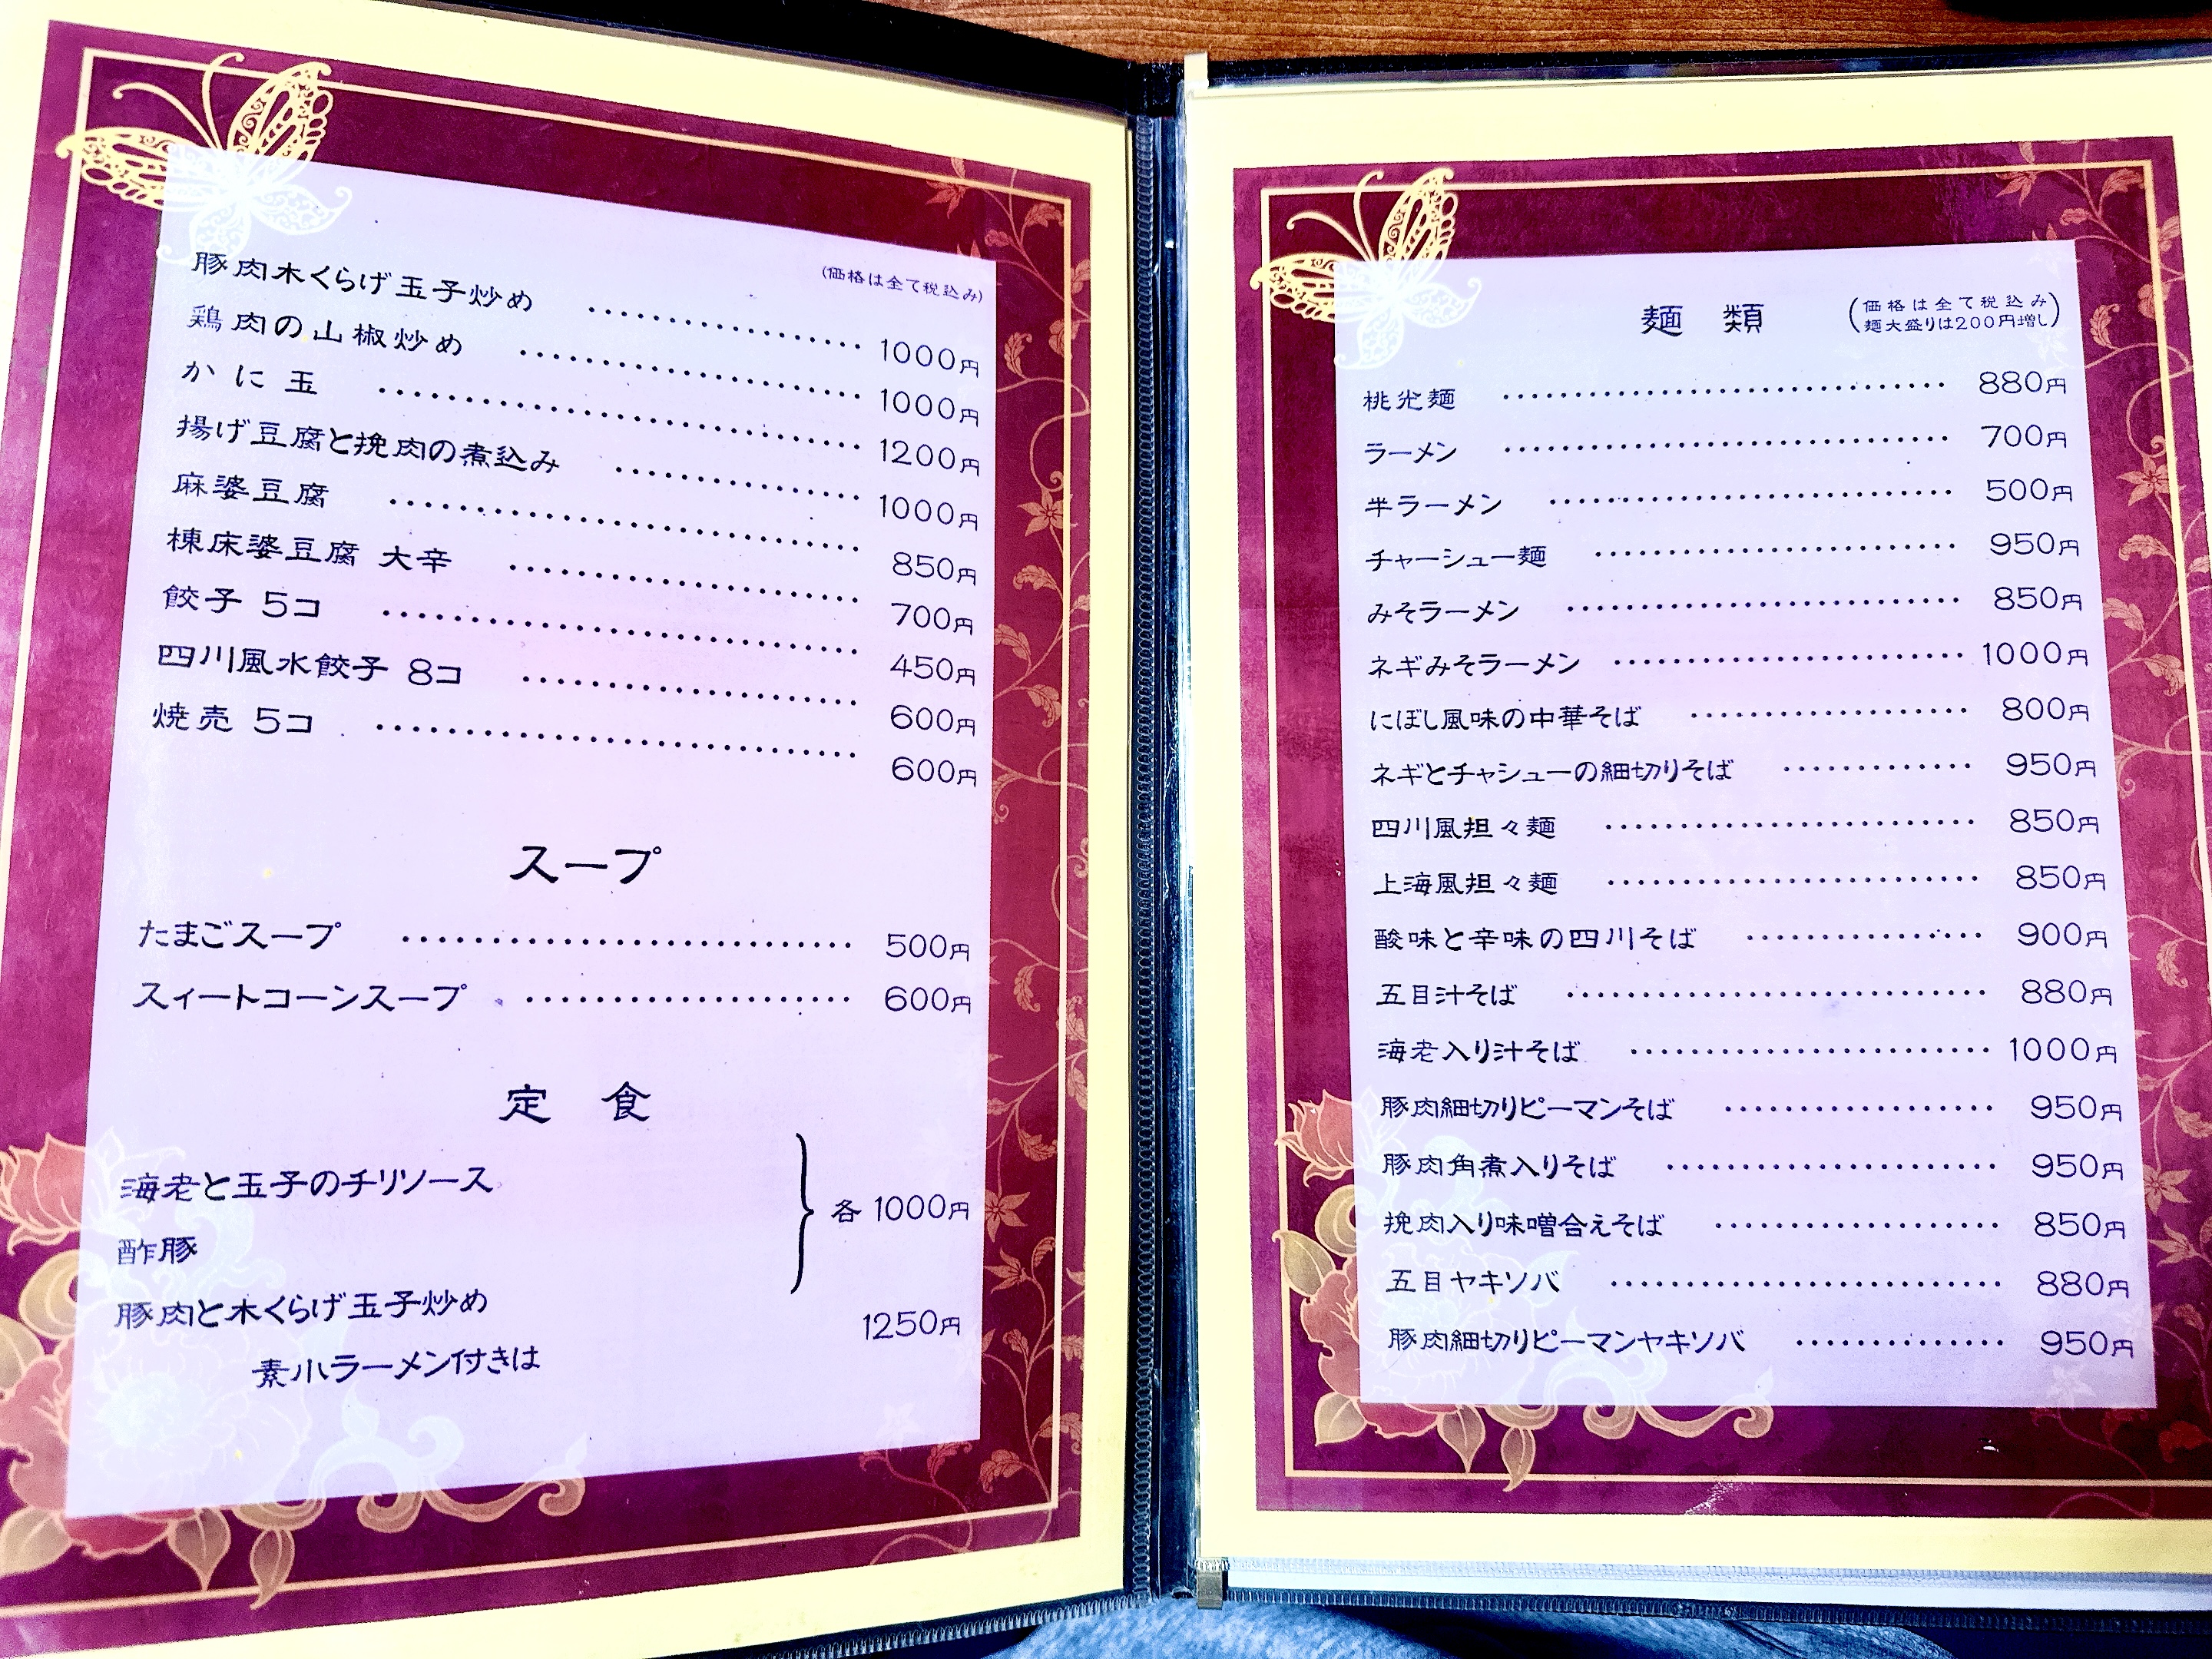 (価格は全て税込み)
豚肉木くらげ玉子炒め ………… 1000円
鶏肉の山椒炒め ………… 1000円
かに玉 ………… 1200円
揚げ豆腐と挽肉の煮込み ………… 1000円
麻婆豆腐 ………… 850円
棟床婆豆腐 大辛 ………… 700円
餃子 5コ ………… 450円
四川風水餃子 8コ ………… 600円
焼売 5コ ………… 600円
スープ
たまごスープ ………… 500円
スィートコーンスープ ………… 600円
定食
海老と玉子のチリソース
酢豚
豚肉と木くらげ玉子炒め
各1000円
素小ラーメン付きは 1250円
麺類
(価格は全て税込み
麺大盛りは200円増し)
桃光麺 ………… 880円
ラーメン ………… 700円
半ラーメン ………… 500円
チャーシュー麺 ………… 950円
みそラーメン ………… 850円
ネギみそラーメン ………… 1000円
にぼし風味の中華そば ………… 800円
ネギとチャシューの細切りそば ………… 950円
四川風担々麺 ………… 850円
上海風担々麺 ………… 850円
酸味と辛味の四川そば ………… 900円
五目汁そば ………… 880円
海老入り汁そば ………… 1000円
豚肉細切りピーマンそば ………… 950円
豚肉角煮入りそば ………… 950円
挽肉入り味噌合えそば ………… 850円
五目ヤキソバ ………… 880円
豚肉細切りピーマンヤキソバ ………… 950円